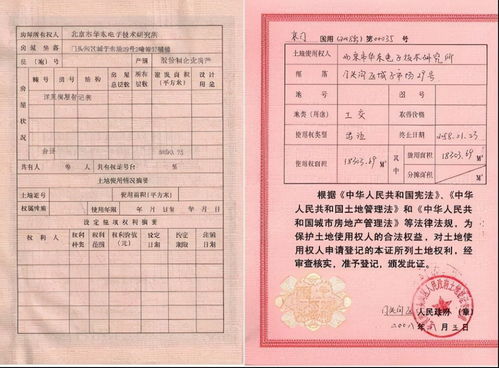 房屋所有权人 北京市华东电子技术研究所
房屋坐落
丘(地)号 产别 股份制企业房产
房屋状况 幢号 房号 结构 房屋总层数 所在层数 建筑面积(平方米) 设计用途
共有人 等 人 共有权证号自 至
土地使用情况摘要
土地证号 使用面积(平方米)
权属性质 使用年限 年 月 日 年 月 日
设定他项权利摘要
权利人 权利种类 权利范围 权利价值(元) 设定日期 约定期限 注销日期
京门 国用
土地使用权人 北京市华东电子技术研究所
座落 门头沟区城子市场29号
地号 图号
地类(用途) 工交 取得价格
使用权类型 出让 终止日期
使用权面积 18303.69 M² 其中 独用面积 18303.69 M²
分摊面积 M²
根据《中华人民共和国宪法》、《中华
人民共和国土地管理法》和《中华人民共
和国城市房地产管理法》等法律法规，为
保护土地使用权人的合法权益，对土地使
用权人申请登记的本证所列土地权利，经
审查核实，准予登记，颁发此证。
门头沟区 人民政府 (章)